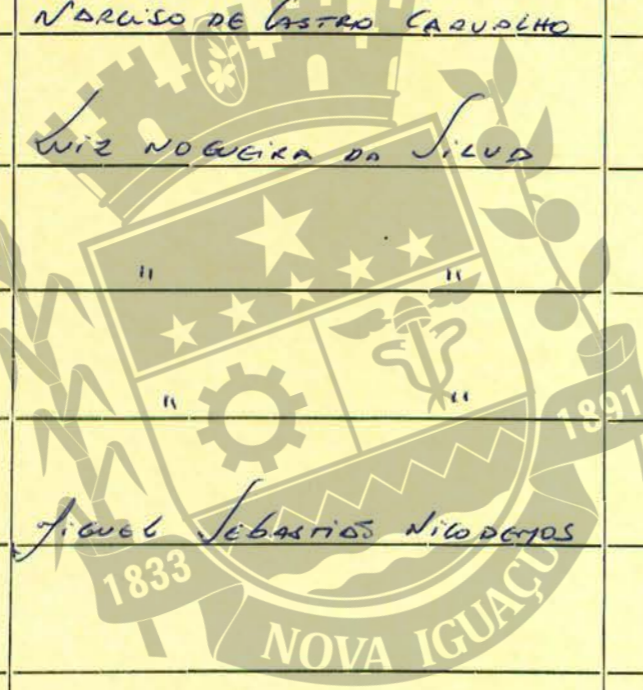 NARCISO DE CASTRO CARVALHO
LUIZ NOGUEIRA DA SILVA
" "
" "
MIGUEL SEBASTIÃO NICODEMOS
1833
NOVA IGUAÇU
1891